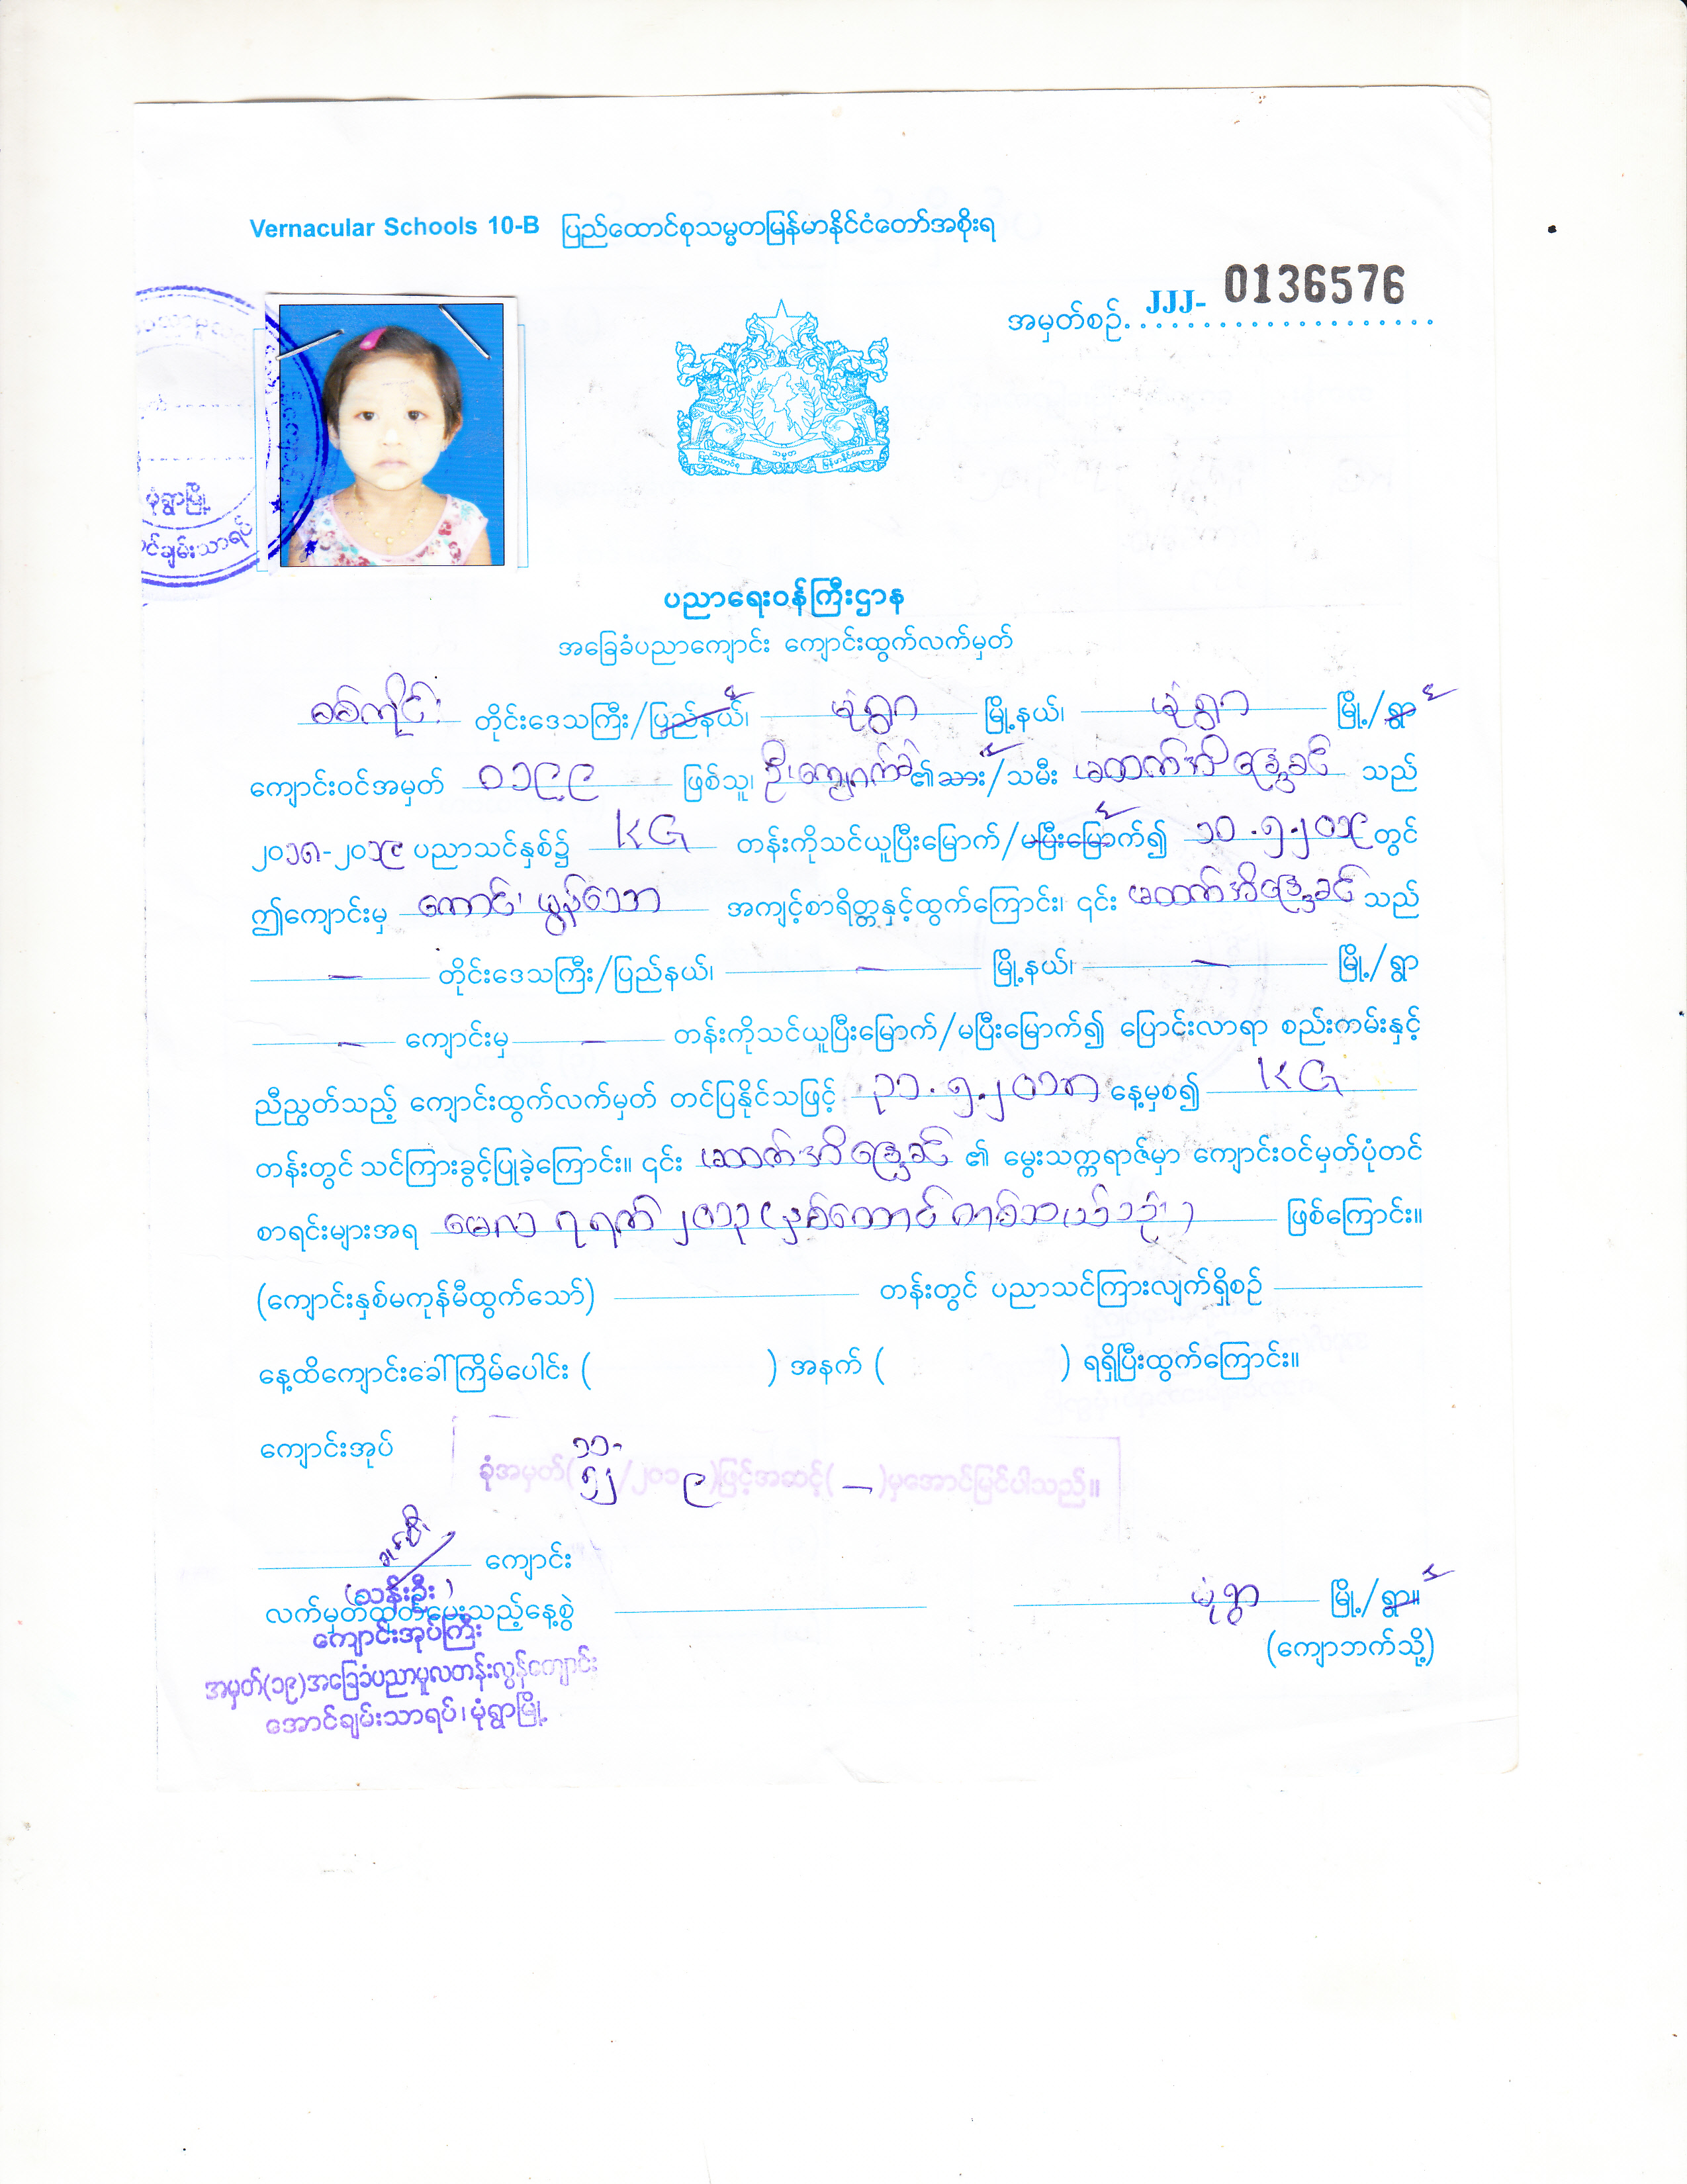 Vernacular Schools 10-B ပြည်ထောင်စုသမ္မတမြန်မာနိုင်ငံတော်အစိုးရ
အမှတ်စဉ် JJJ- 0136576
ပြည်ထောင်စု သမ္မတ မြန်မာနိုင်ငံတော်
မုံရွာမြို့
အောင်ချမ်းသာရပ်
ပညာရေးဝန်ကြီးဌာန
အခြေခံပညာကျောင်း ကျောင်းထွက်လက်မှတ်
စစ်ကိုင်း တိုင်းဒေသကြီး/ပြည်နယ်၊ မုံရွာ မြို့နယ်၊ မုံရွာ မြို့/ရွာ
ကျောင်းဝင်အမှတ် ၀၁၉၉ ဖြစ်သူ၊ ၏သား/သမီး သည်
၂၀၁၈-၂၀၁၉ ပညာသင်နှစ်၌ KG တန်းကိုသင်ယူပြီးမြောက်/မပြီးမြောက်၍ ၁၀.၅.၂၀၁၉ တွင်
ဤကျောင်းမှ ကောင်း မွန်သော အကျင့်စာရိတ္တနှင့်ထွက်ကြောင်း၊ ၎င်း သည်
— တိုင်းဒေသကြီး/ပြည်နယ်၊ — မြို့နယ်၊ — မြို့/ရွာ
— ကျောင်းမှ — တန်းကိုသင်ယူပြီးမြောက်/မပြီးမြောက်၍ ပြောင်းလာရာ စည်းကမ်းနှင့်
ညီညွတ်သည့် ကျောင်းထွက်လက်မှတ် တင်ပြနိုင်သဖြင့် ၃၁.၅.၂၀၁၈ နေ့မှစ၍ KG
တန်းတွင် သင်ကြားခွင့်ပြုခဲ့ကြောင်း။ ၎င်း ၏ မွေးသက္ကရာဇ်မှာ ကျောင်းဝင်မှတ်ပုံတင်
စာရင်းများအရ မေလ ၇ ရက် ၂၀၁၃ (နှစ်ထောင် တစ်ဆယ့်သုံး) ဖြစ်ကြောင်း။
(ကျောင်းနှစ်မကုန်မီထွက်သော်) တန်းတွင် ပညာသင်ကြားလျက်ရှိစဉ်
နေ့ထိကျောင်းခေါ်ကြိမ်ပေါင်း ( ) အနက် ( ) ရရှိပြီးထွက်ကြောင်း။
ကျောင်းအုပ်
ခုံအမှတ်( /၂၀၁၉)ဖြင့်အဆင့်( — )မှအောင်မြင်ပါသည်။
ကျောင်း
(သန်းဦး)
လက်မှတ်ထုတ်ပေးသည့်နေ့စွဲ မုံရွာ မြို့/ရွာ။
ကျောင်းအုပ်ကြီး (ကျောဘက်သို့)
အမှတ်(၁၉)အခြေခံပညာမူလတန်းလွန်ကျောင်း
အောင်ချမ်းသာရပ်၊ မုံရွာမြို့